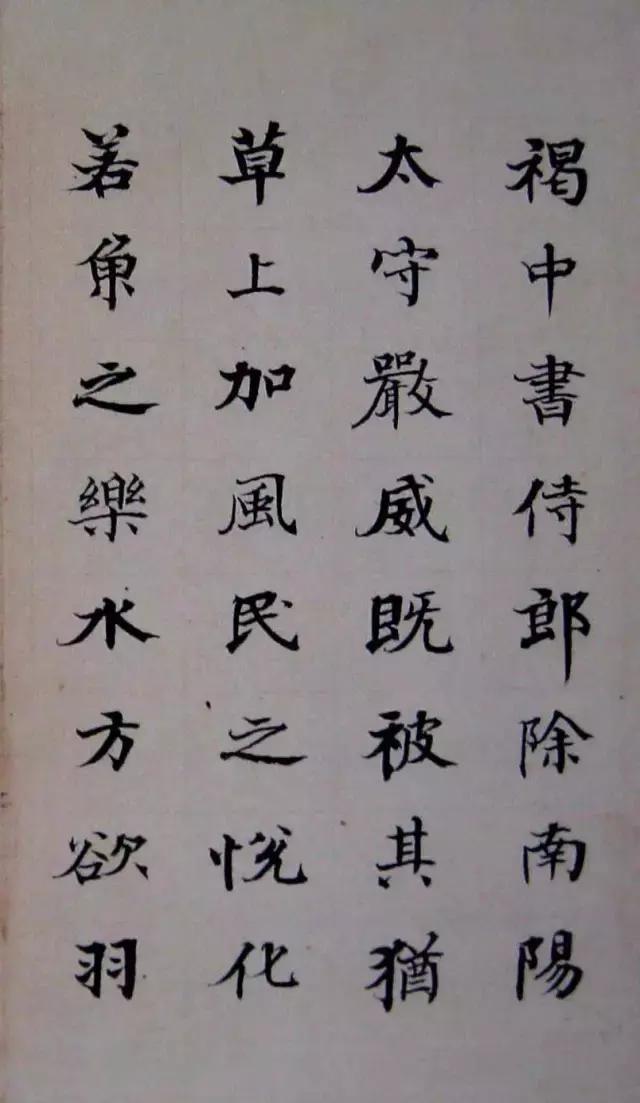 褐中書侍郎除南陽
太守嚴威既被其猶
草上加風民之悅化
若魚之樂水方欲羽